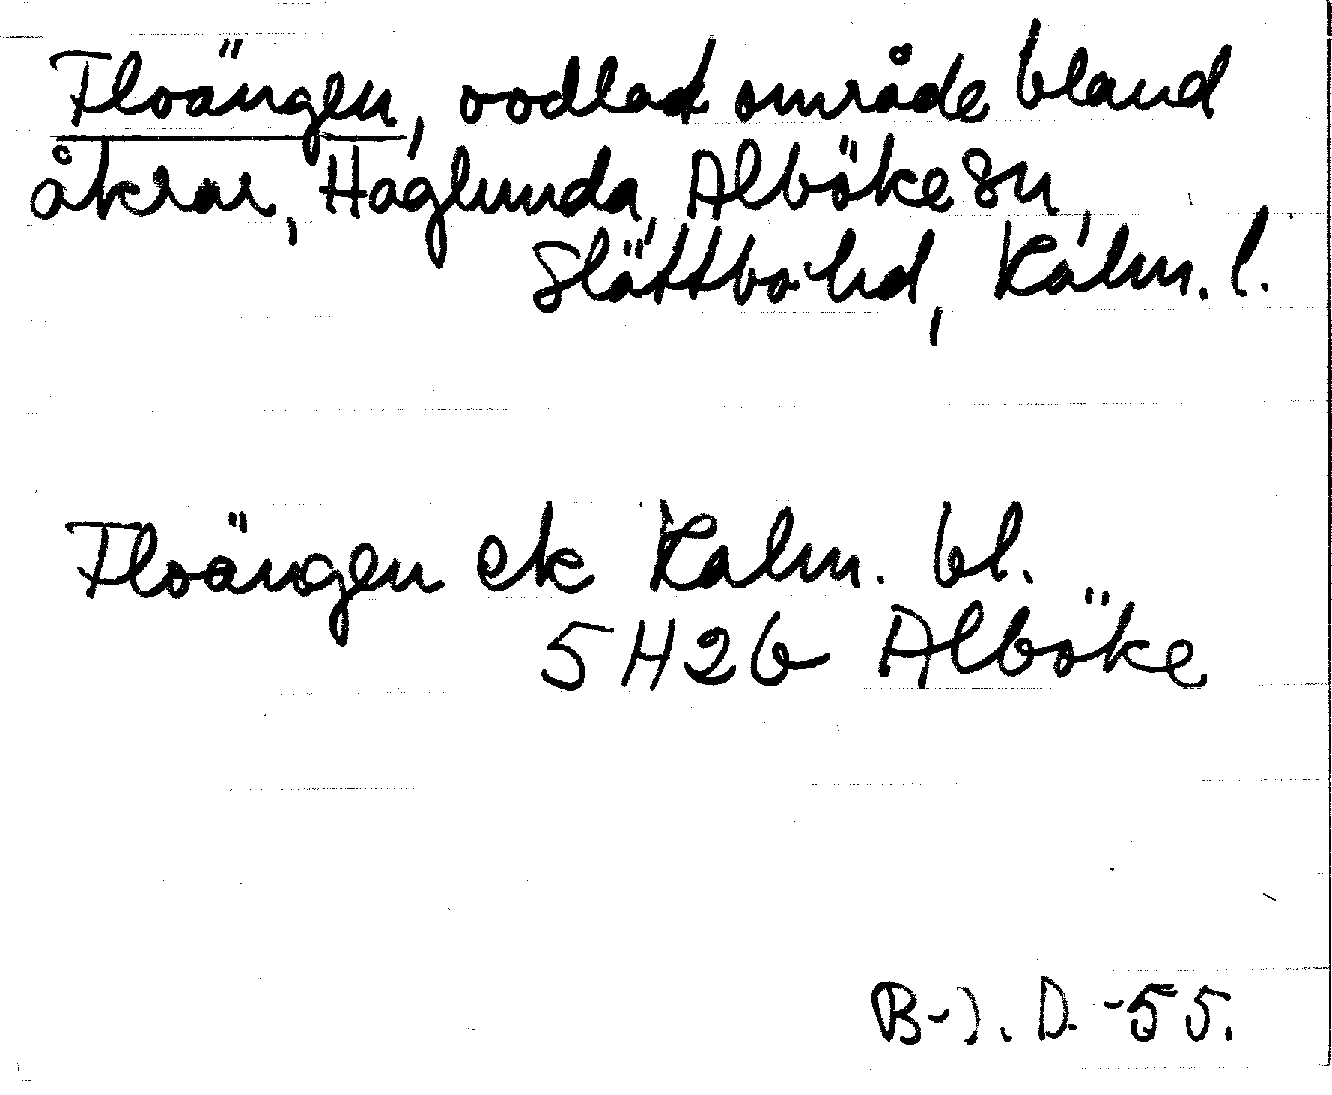 Floängen, oodlad område bland
åkrar, Haglunda, Alböke sn,
Slättbo hd, Kalm. l.
Floängen ek Kalm. bl.
5H2b Alböke
B-J. D. -55.